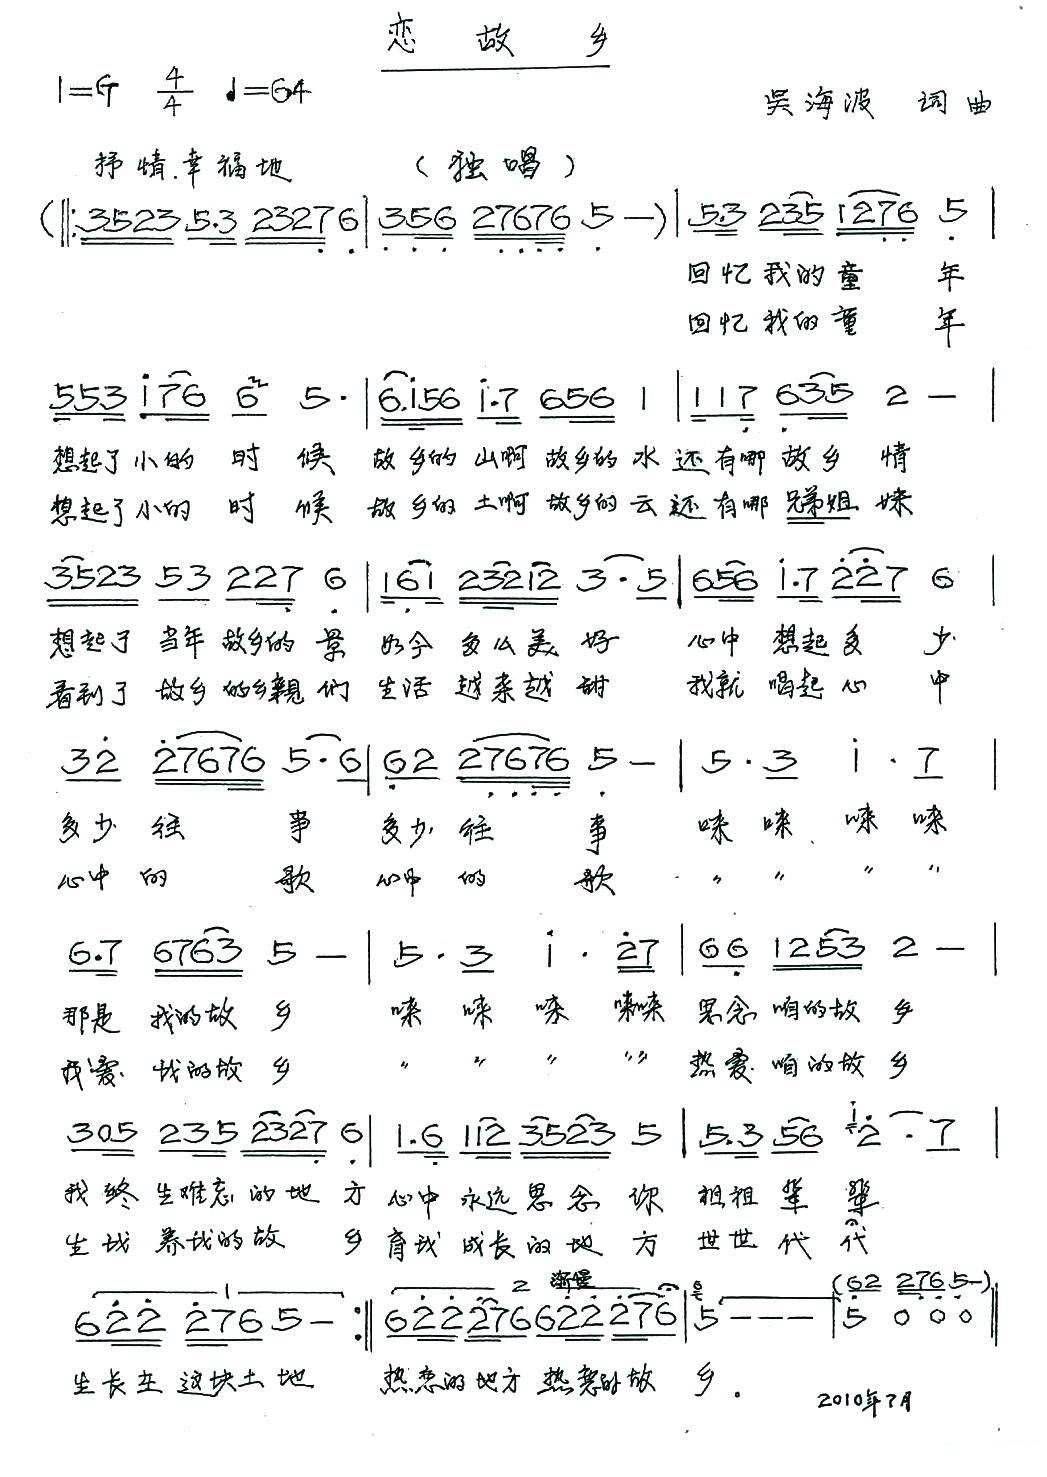 恋故乡
1=G 4/4 ♩=64
吴海波 词曲
抒情.幸福地 (独唱)
(‖: 3523 5.3 2327 6 | 356 27676 5 —) | 5.3 235 1276 5 |
回忆我的童 年
回忆我的童 年
553 176 6 5· | 6.156 1.7 656 1 | 117 635 2 — |
想起了小的 时 候 故乡的 山啊 故乡的 水 还有哪 故乡 情
想起了小的 时 候 故乡的 土啊 故乡的 云 还有哪 兄弟姐 妹
3523 53 227 6 | 161 23212 3·5 | 656 1.7 227 6 |
想起了 当年 故乡的 景 如今 多么美 好 心中 想起多 少
看到了 故乡 的乡親 们 生活 越来越 甜 我就 唱起心 中
32 27676 5·6 | 62 27676 5 — | 5·3 1·7 |
多少 往 事 多少 往 事 唻 唻 唻 唻
心中 的 歌 心中 的 歌 〃 〃 〃 〃
6.7 6763 5 — | 5·3 1·27 | 66 1253 2 — |
那是 我的故 乡 唻 唻 唻 唻唻 思念 咱的故 乡
我爱 我的故 乡 〃 〃 〃 〃〃 热爱 咱的故 乡
305 235 2327 6 | 1.6 112 3523 5 | 5.3 56 2·7 |
我 终 生难忘 的 地 方 心中 永远 思 念 你 祖祖 辈 辈
生我 养我的故 乡 育我 成长 的 地 方 世世 代 代
1 2 渐慢 (62 276 5—)
622 276 5 — :‖ 622 276 622 276 | 5 — — — | 5 0 0 0 ‖
生长在 这块土 地 热恋的 地方 热恋的故 乡.
2010年7月